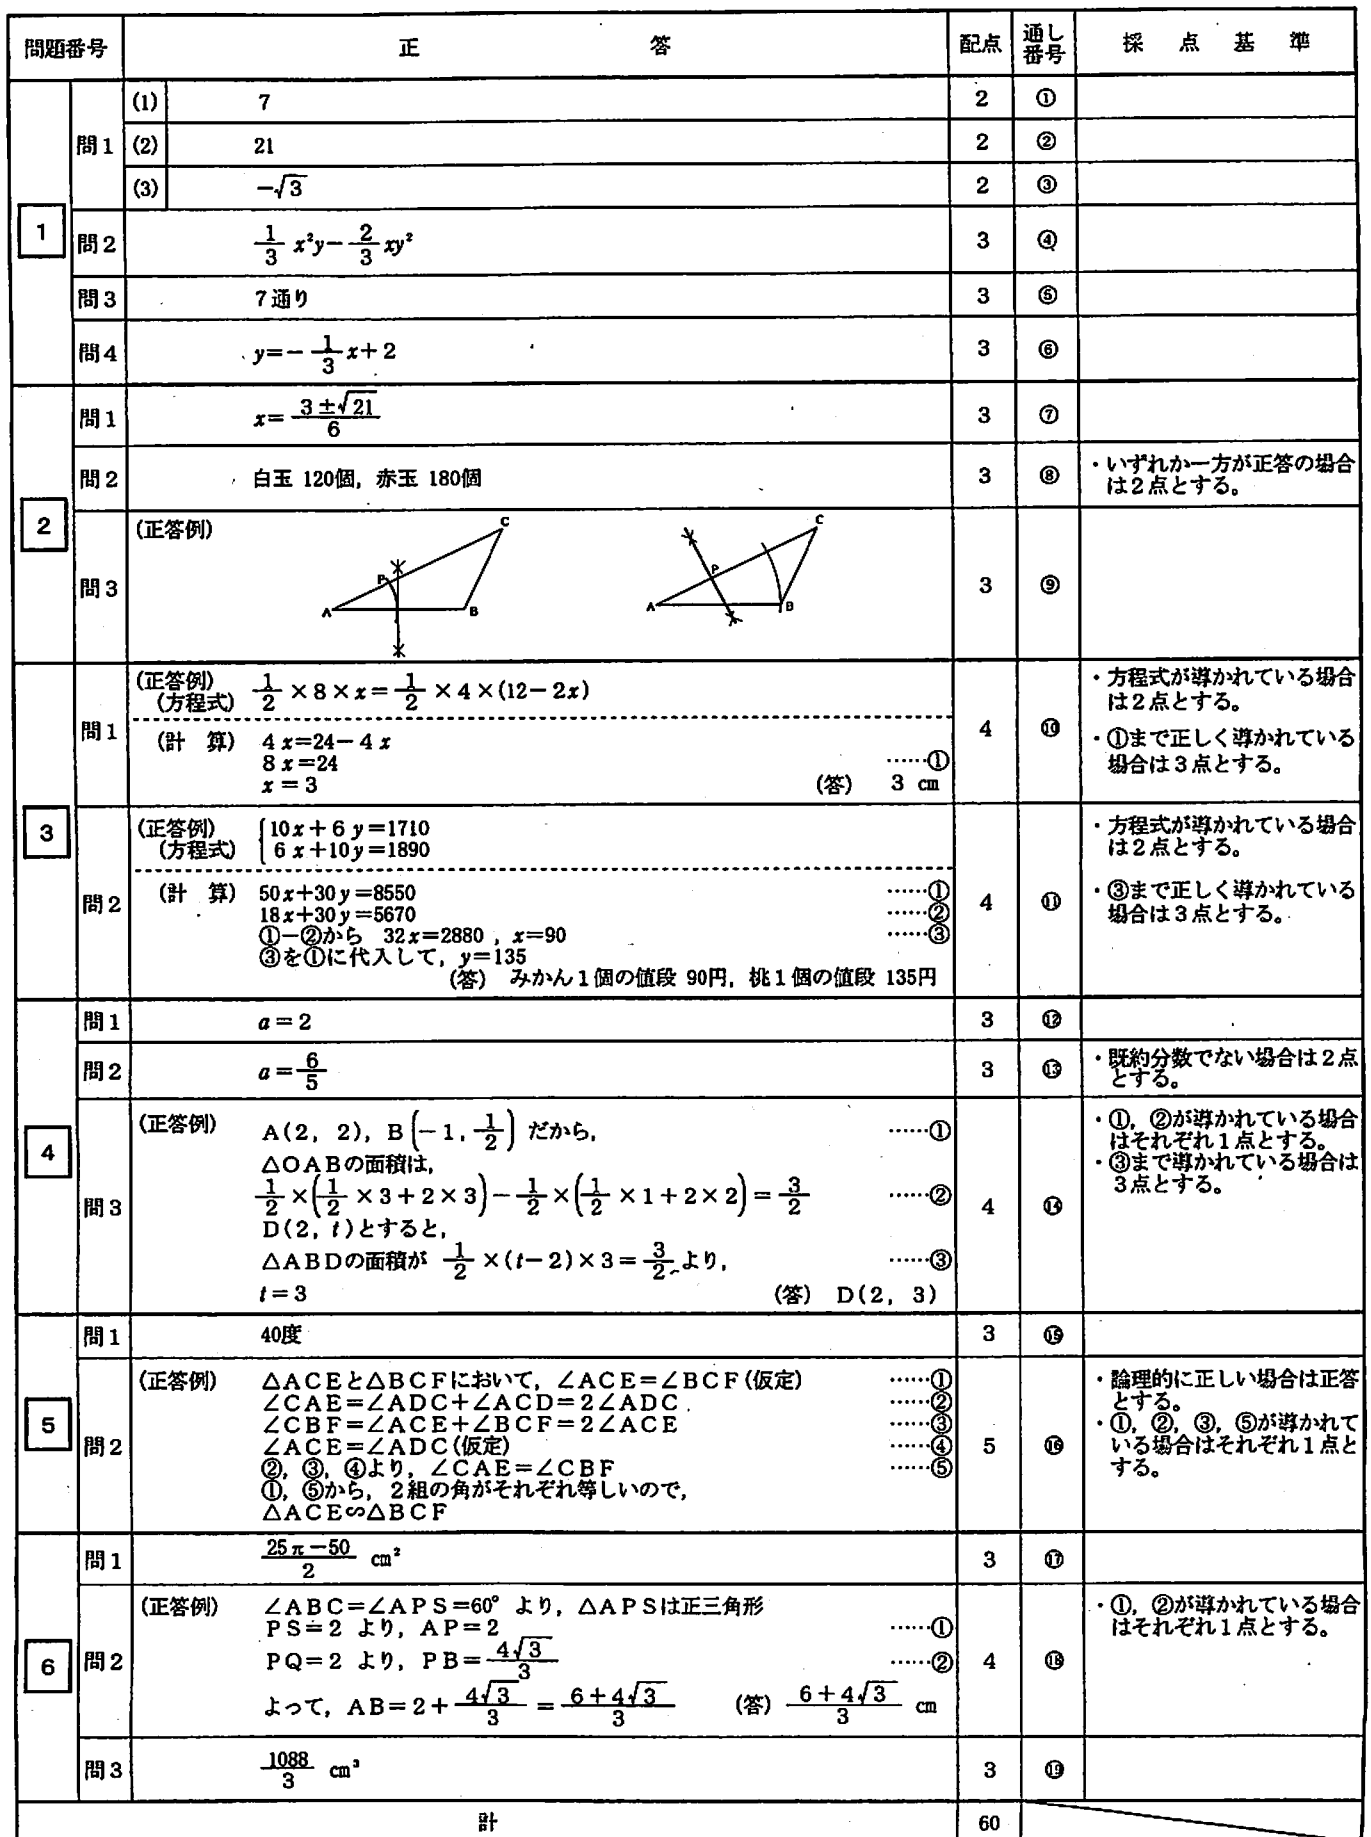 問題番号 正 答 配点 通し番号 採 点 基 準
1
問1 (1) 7 2 ①
(2) 21 2 ②
(3) −√3 2 ③
問2 1/3 x²y−2/3 xy² 3 ④
問3 7通り 3 ⑤
問4 y=−1/3 x+2 3 ⑥
2
問1 x=(3±√21)/6 3 ⑦
問2 白玉 120個,赤玉 180個 3 ⑧ ・いずれか一方が正答の場合
は2点とする。
問3 (正答例) 3 ⑨
A P B C
A P B C
3
問1 (正答例)
(方程式) 1/2×8×x=1/2×4×(12−2x)
(計 算) 4x=24−4x
8x=24 ……①
x=3 (答) 3 cm
4 ⑩
・方程式が導かれている場合
は2点とする。
・①まで正しく導かれている
場合は3点とする。
問2 (正答例)
(方程式) { 10x+6y=1710
6x+10y=1890
(計 算) 50x+30y=8550 ……①
18x+30y=5670 ……②
①−②から 32x=2880 , x=90 ……③
③を①に代入して,y=135
(答) みかん1個の値段 90円,桃1個の値段 135円
4 ⑪
・方程式が導かれている場合
は2点とする。
・③まで正しく導かれている
場合は3点とする。
4
問1 a=2 3 ⑫
問2 a=6/5 3 ⑬ ・既約分数でない場合は2点
とする。
問3 (正答例) A(2, 2), B(−1, 1/2) だから, ……①
△OABの面積は,
1/2×(1/2×3+2×3)−1/2×(1/2×1+2×2)=3/2 ……②
D(2, t)とすると,
△ABDの面積が 1/2×(t−2)×3=3/2 より, ……③
t=3 (答) D(2, 3)
4 ⑭
・①,②が導かれている場合
はそれぞれ1点とする。
・③まで導かれている場合は
3点とする。
5
問1 40度 3 ⑮
問2 (正答例) △ACEと△BCFにおいて,∠ACE=∠BCF(仮定) ……①
∠CAE=∠ADC+∠ACD=2∠ADC ……②
∠CBF=∠ACE+∠BCF=2∠ACE ……③
∠ACE=∠ADC(仮定) ……④
②,③,④より,∠CAE=∠CBF ……⑤
①,⑤から,2組の角がそれぞれ等しいので,
△ACE∽△BCF
5 ⑯
・論理的に正しい場合は正答
とする。
・①,②,③,⑤が導かれて
いる場合はそれぞれ1点と
する。
6
問1 (25π−50)/2 cm² 3 ⑰
問2 (正答例) ∠ABC=∠APS=60° より,△APSは正三角形
PS=2 より,AP=2 ……①
PQ=2 より,PB=4√3/3 ……②
よって,AB=2+4√3/3=(6+4√3)/3 (答) (6+4√3)/3 cm
4 ⑱
・①,②が導かれている場合
はそれぞれ1点とする。
問3 1088/3 cm³ 3 ⑲
計 60